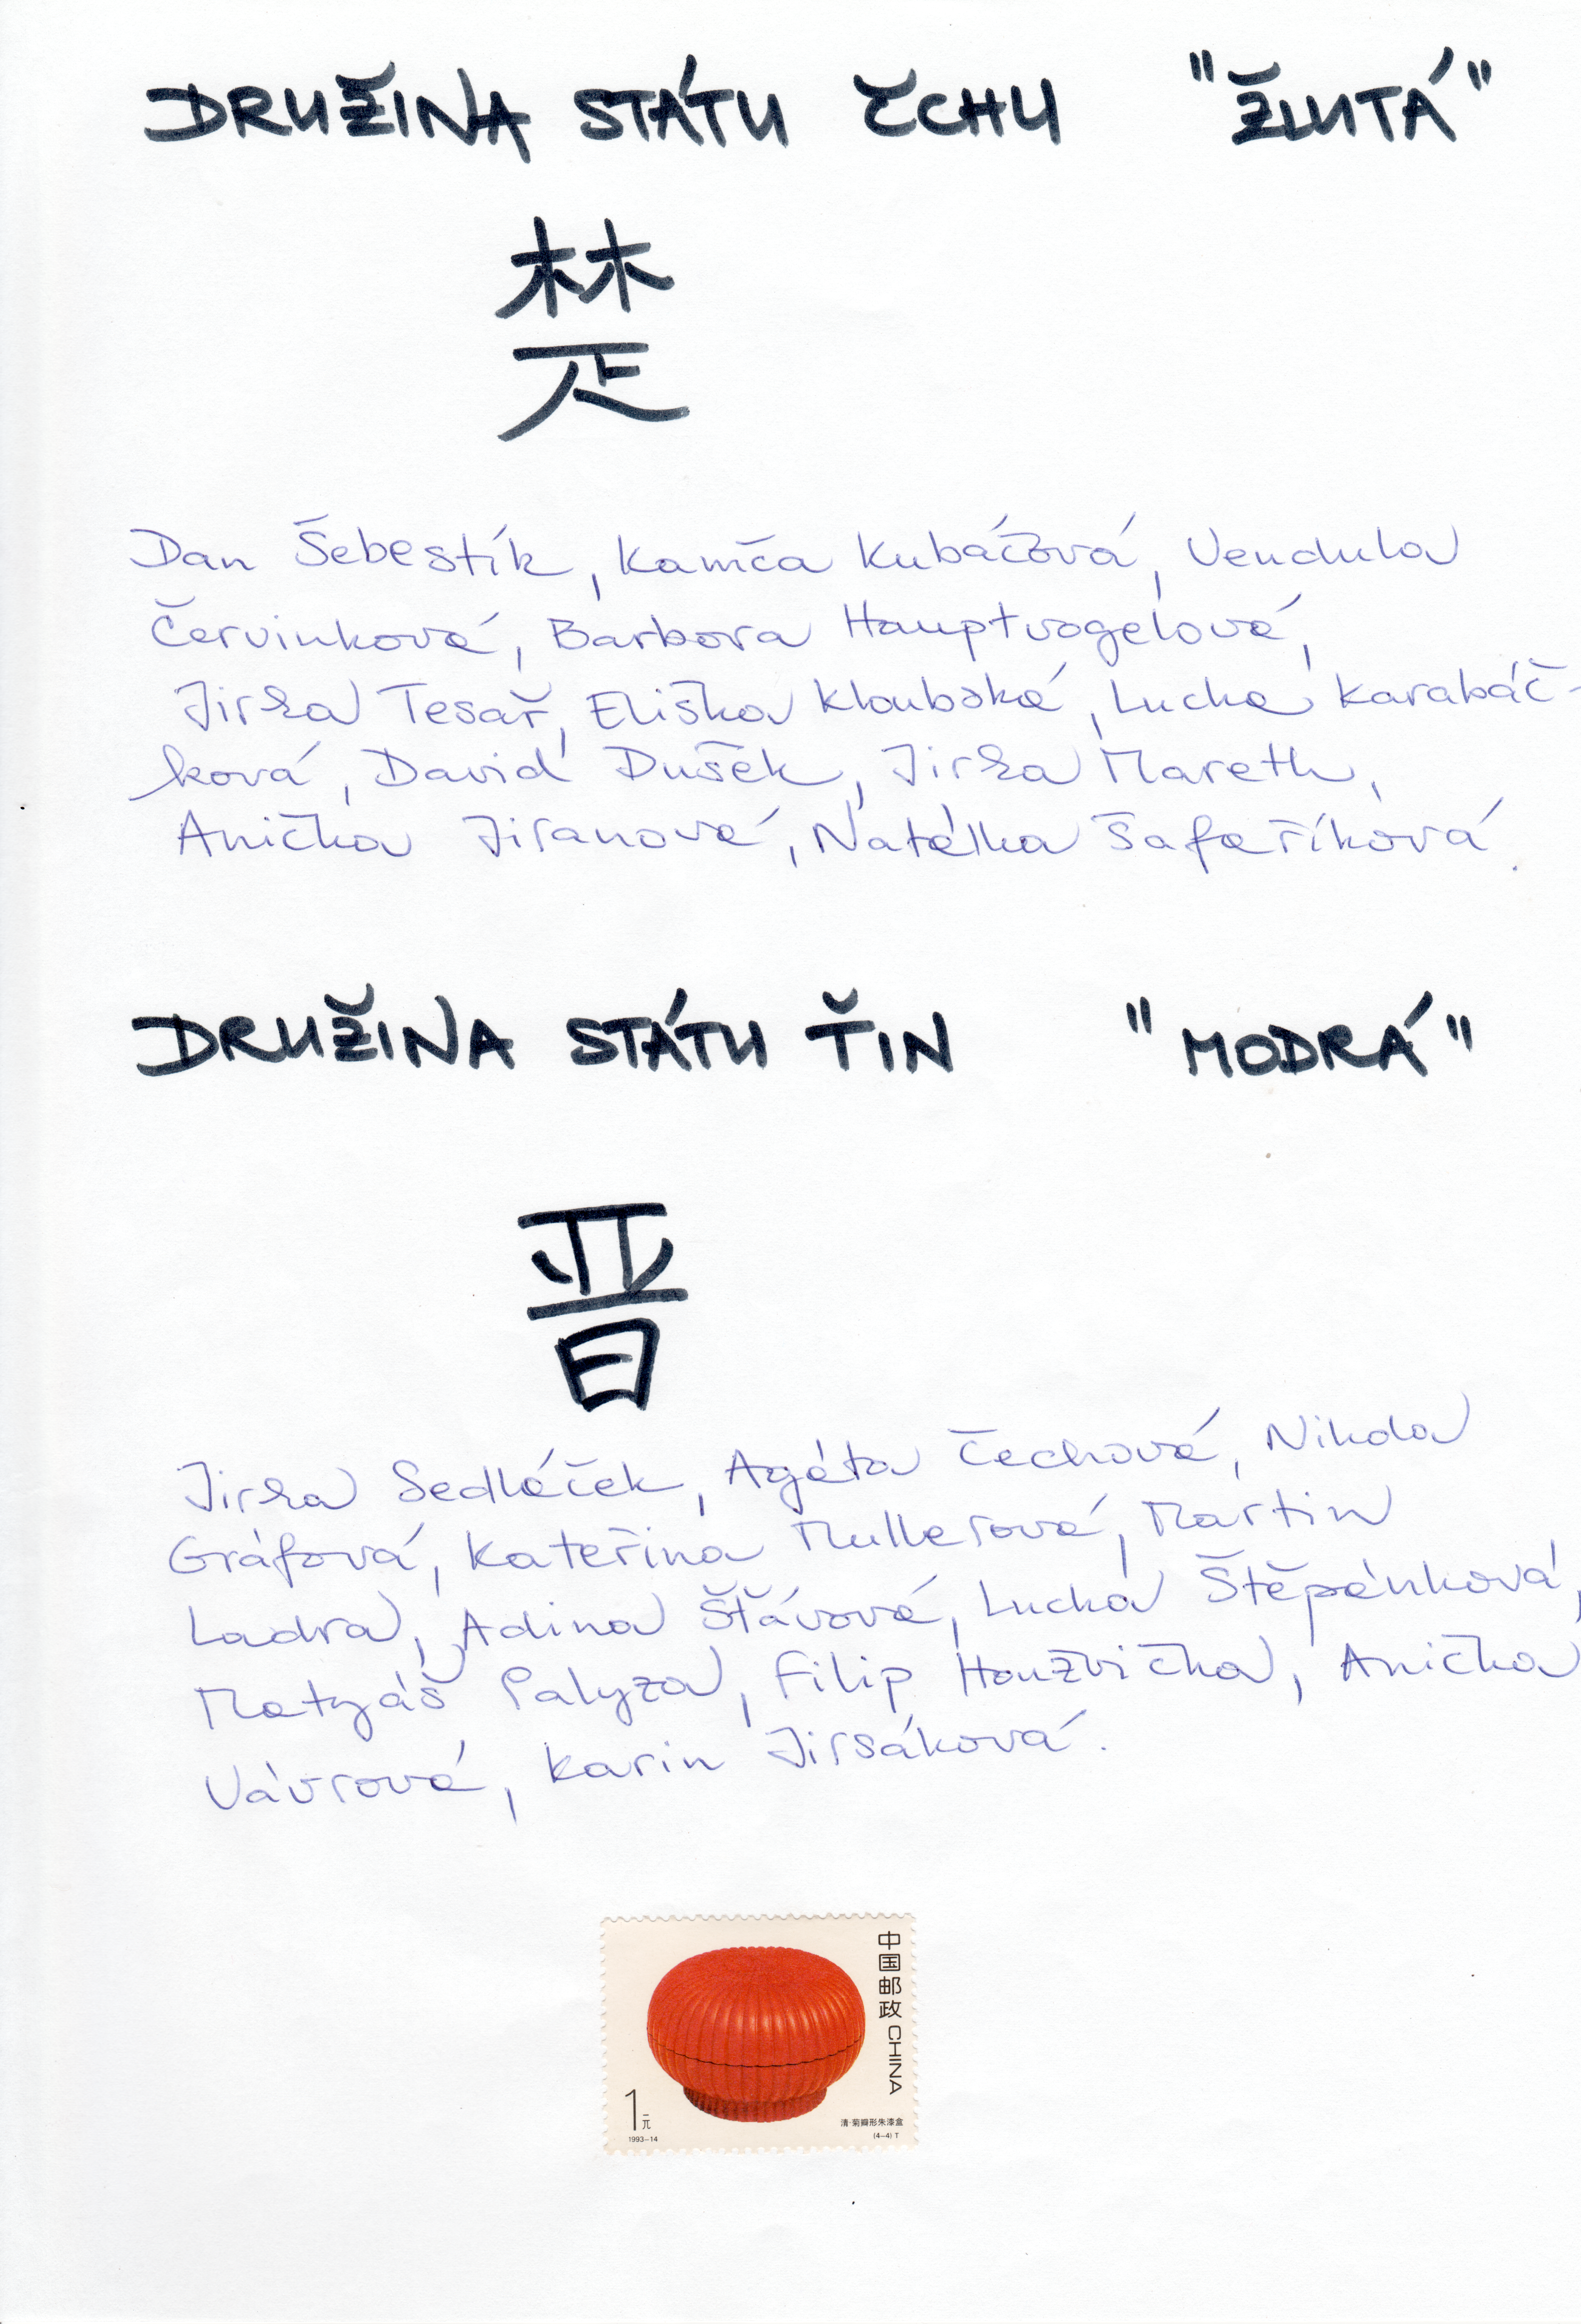 DRUŽINA STÁTU ČCHU "ŽLUTÁ"
楚
Dan Šebestík, Kamča Kubáčová, Vendula
Červinková, Barbora Hauptvogelová,
Jirka Tesař, Eliška Kloubská, Lucka Karabáč-
ková, David Dušek, Jirka Mareth,
Anička Jiranová, Natálka Šafaříková.
DRUŽINA STÁTU ŤIN "MODRÁ"
晋
Jirka Sedláček, Agáta Čechová, Nikola
Gráfová, Kateřina Mullerová, Martin
Ladra, Adina Šťávová, Lucka Štěpánková,
Matyáš Palyza, Filip Houžvička, Anička
Vávrová, Karin Jirsáková.
中国邮政 CHINA
1元
1993-14
清·菊瓣形朱漆盒
(4-4) T